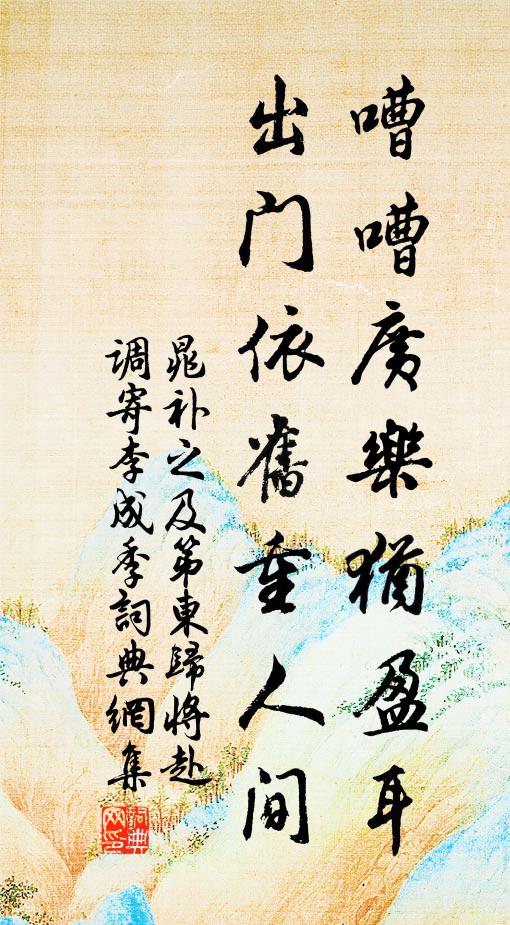 嘈嘈廣樂猶盈耳
出门依舊重人间
晁补之及第東歸將赴
调寄李成季詞典網集
詞典
网印